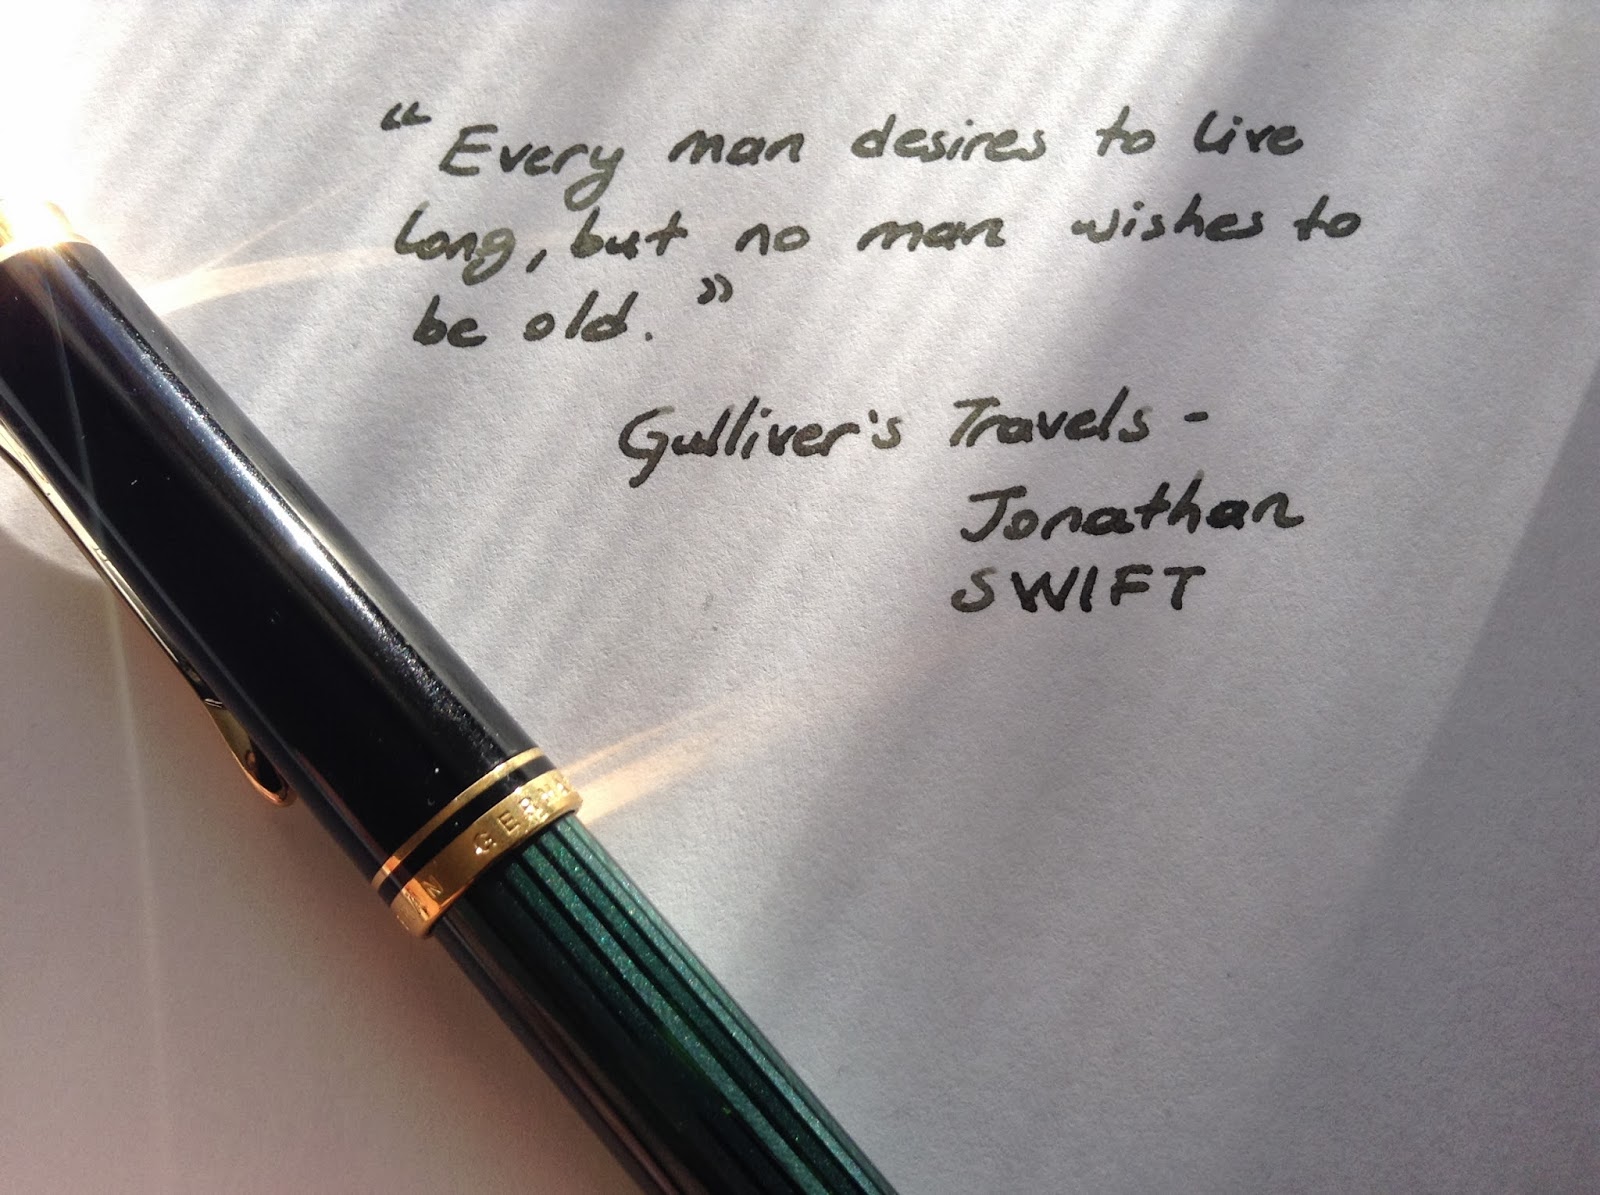 “ Every man desires to live
long, but no man wishes to
be old. ”
Gulliver's Travels -
Jonathan
SWIFT